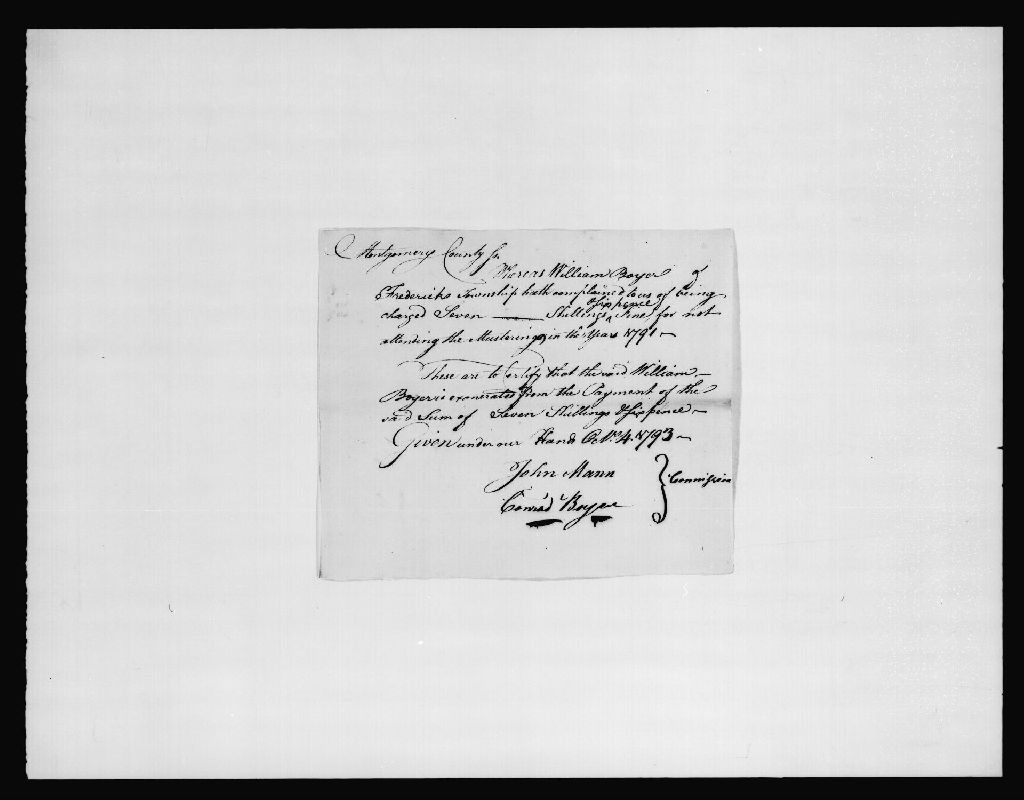 Montgomery County Ss.
Wheras William Boyer of
Fredericks Township hath complained to us of being
& sixpence
charged Seven —— Shillings ^ fine for not
attending the Musterings in the Year 1791 —
These are to Certify that the said William —
Boyer is exonerated from the Payment of the
said Sum of Seven Shillings & Sixpence —
Given under our Hand 4. 1793 —
John Mann
Conrad Boyer
} Commission